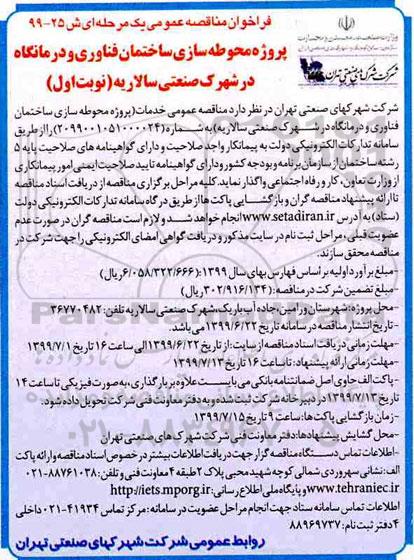 فراخوان مناقصه عمومی یک مرحله‌ای ش ۲۵-۹۹
پروژه محوطه سازی ساختمان فناوری و درمانگاه
در شهرک صنعتی سالاریه (نوبت اول)
شرکت شهرکهای صنعتی تهران
شرکت شهرکهای صنعتی تهران در نظر دارد مناقصه عمومی خدمات (پروژه محوطه سازی ساختمان
فناوری و درمانگاه در شهرک صنعتی سالاریه) به شماره (۲۰۹۹۰۰۱۰۵۱۰۰۰۰۲۴) را از طریق
سامانه تدارکات الکترونیکی دولت به پیمانکار واجد صلاحیت و دارای گواهینامه های صلاحیت پایه ۵
رشته ساختمان از سازمان برنامه و بودجه کشور و دارای گواهینامه تایید صلاحیت ایمنی امور پیمانکاری
از وزارت تعاون، کار و رفاه اجتماعی واگذار نماید. کلیه مراحل برگزاری مناقصه از دریافت اسناد مناقصه
تا ارائه پیشنهاد مناقصه گران و بازگشایی پاکت ها از طریق درگاه سامانه تدارکات الکترونیکی دولت
(ستاد) به آدرس www.setadiran.ir انجام خواهد شد و لازم است مناقصه گران در صورت عدم
عضویت قبلی، مراحل ثبت نام در سایت مذکور و دریافت گواهی امضای الکترونیکی را جهت شرکت در
مناقصه محقق سازند.
-مبلغ برآورد اولیه بر اساس فهارس بهای سال ۱۳۹۹: (۶/۰۵۸/۳۲۲/۶۶۶ ریال)
-مبلغ تضمین شرکت در مناقصه: (۳۰۲/۹۱۶/۱۳۴ ریال)
-محل پروژه: شهرستان ورامین، جاده آب باریک، شهرک صنعتی سالاریه تلفن: ۳۶۷۷۰۴۸۲
-تاریخ انتشار مناقصه در سامانه تاریخ ۱۳۹۹/۶/۲۲ می باشد.
-مهلت زمانی دریافت اسناد مناقصه از سایت: از تاریخ ۱۳۹۹/۶/۲۲ الی ساعت ۱۶ تاریخ ۱۳۹۹/۷/۱
-مهلت زمانی ارائه پیشنهاد: تا ساعت ۱۶ تاریخ ۱۳۹۹/۷/۱۳
-پاکت الف حاوی اصل ضمانتنامه بانکی می بایست علاوه بر بارگذاری، به صورت فیزیکی تا ساعت ۱۴
تاریخ ۱۳۹۹/۷/۱۳ در دبیرخانه شرکت ثبت شده و به دفتر معاونت فنی شرکت تحویل داده شود.
-زمان بازگشایی پاکت ها: ساعت ۹ تاریخ ۱۳۹۹/۷/۱۵
-محل گشایش پیشنهادها: دفتر معاونت فنی شرکت شهرک های صنعتی تهران
-اطلاعات تماس دستگاه مناقصه گزار جهت دریافت اطلاعات بیشتر در خصوص اسناد مناقصه و ارائه پاکت
الف: نشانی سهروردی شمالی کوچه شهید محبی پلاک ۲ طبقه ۴ معاونت فنی و تلفن: ۸۸۷۶۱۰۳۸-۰۲۱
www.tehraniec.ir و پایگاه ملی اطلاع رسانی: http://iets.mporg.ir
-اطلاعات تماس سامانه ستاد جهت انجام مراحل عضویت در سامانه: مرکز تماس ۴۱۹۳۴-۰۲۱ داخلی
۴ دفتر ثبت نام: ۸۸۹۶۹۷۳۷
روابط عمومی شرکت شهرکهای صنعتی تهران